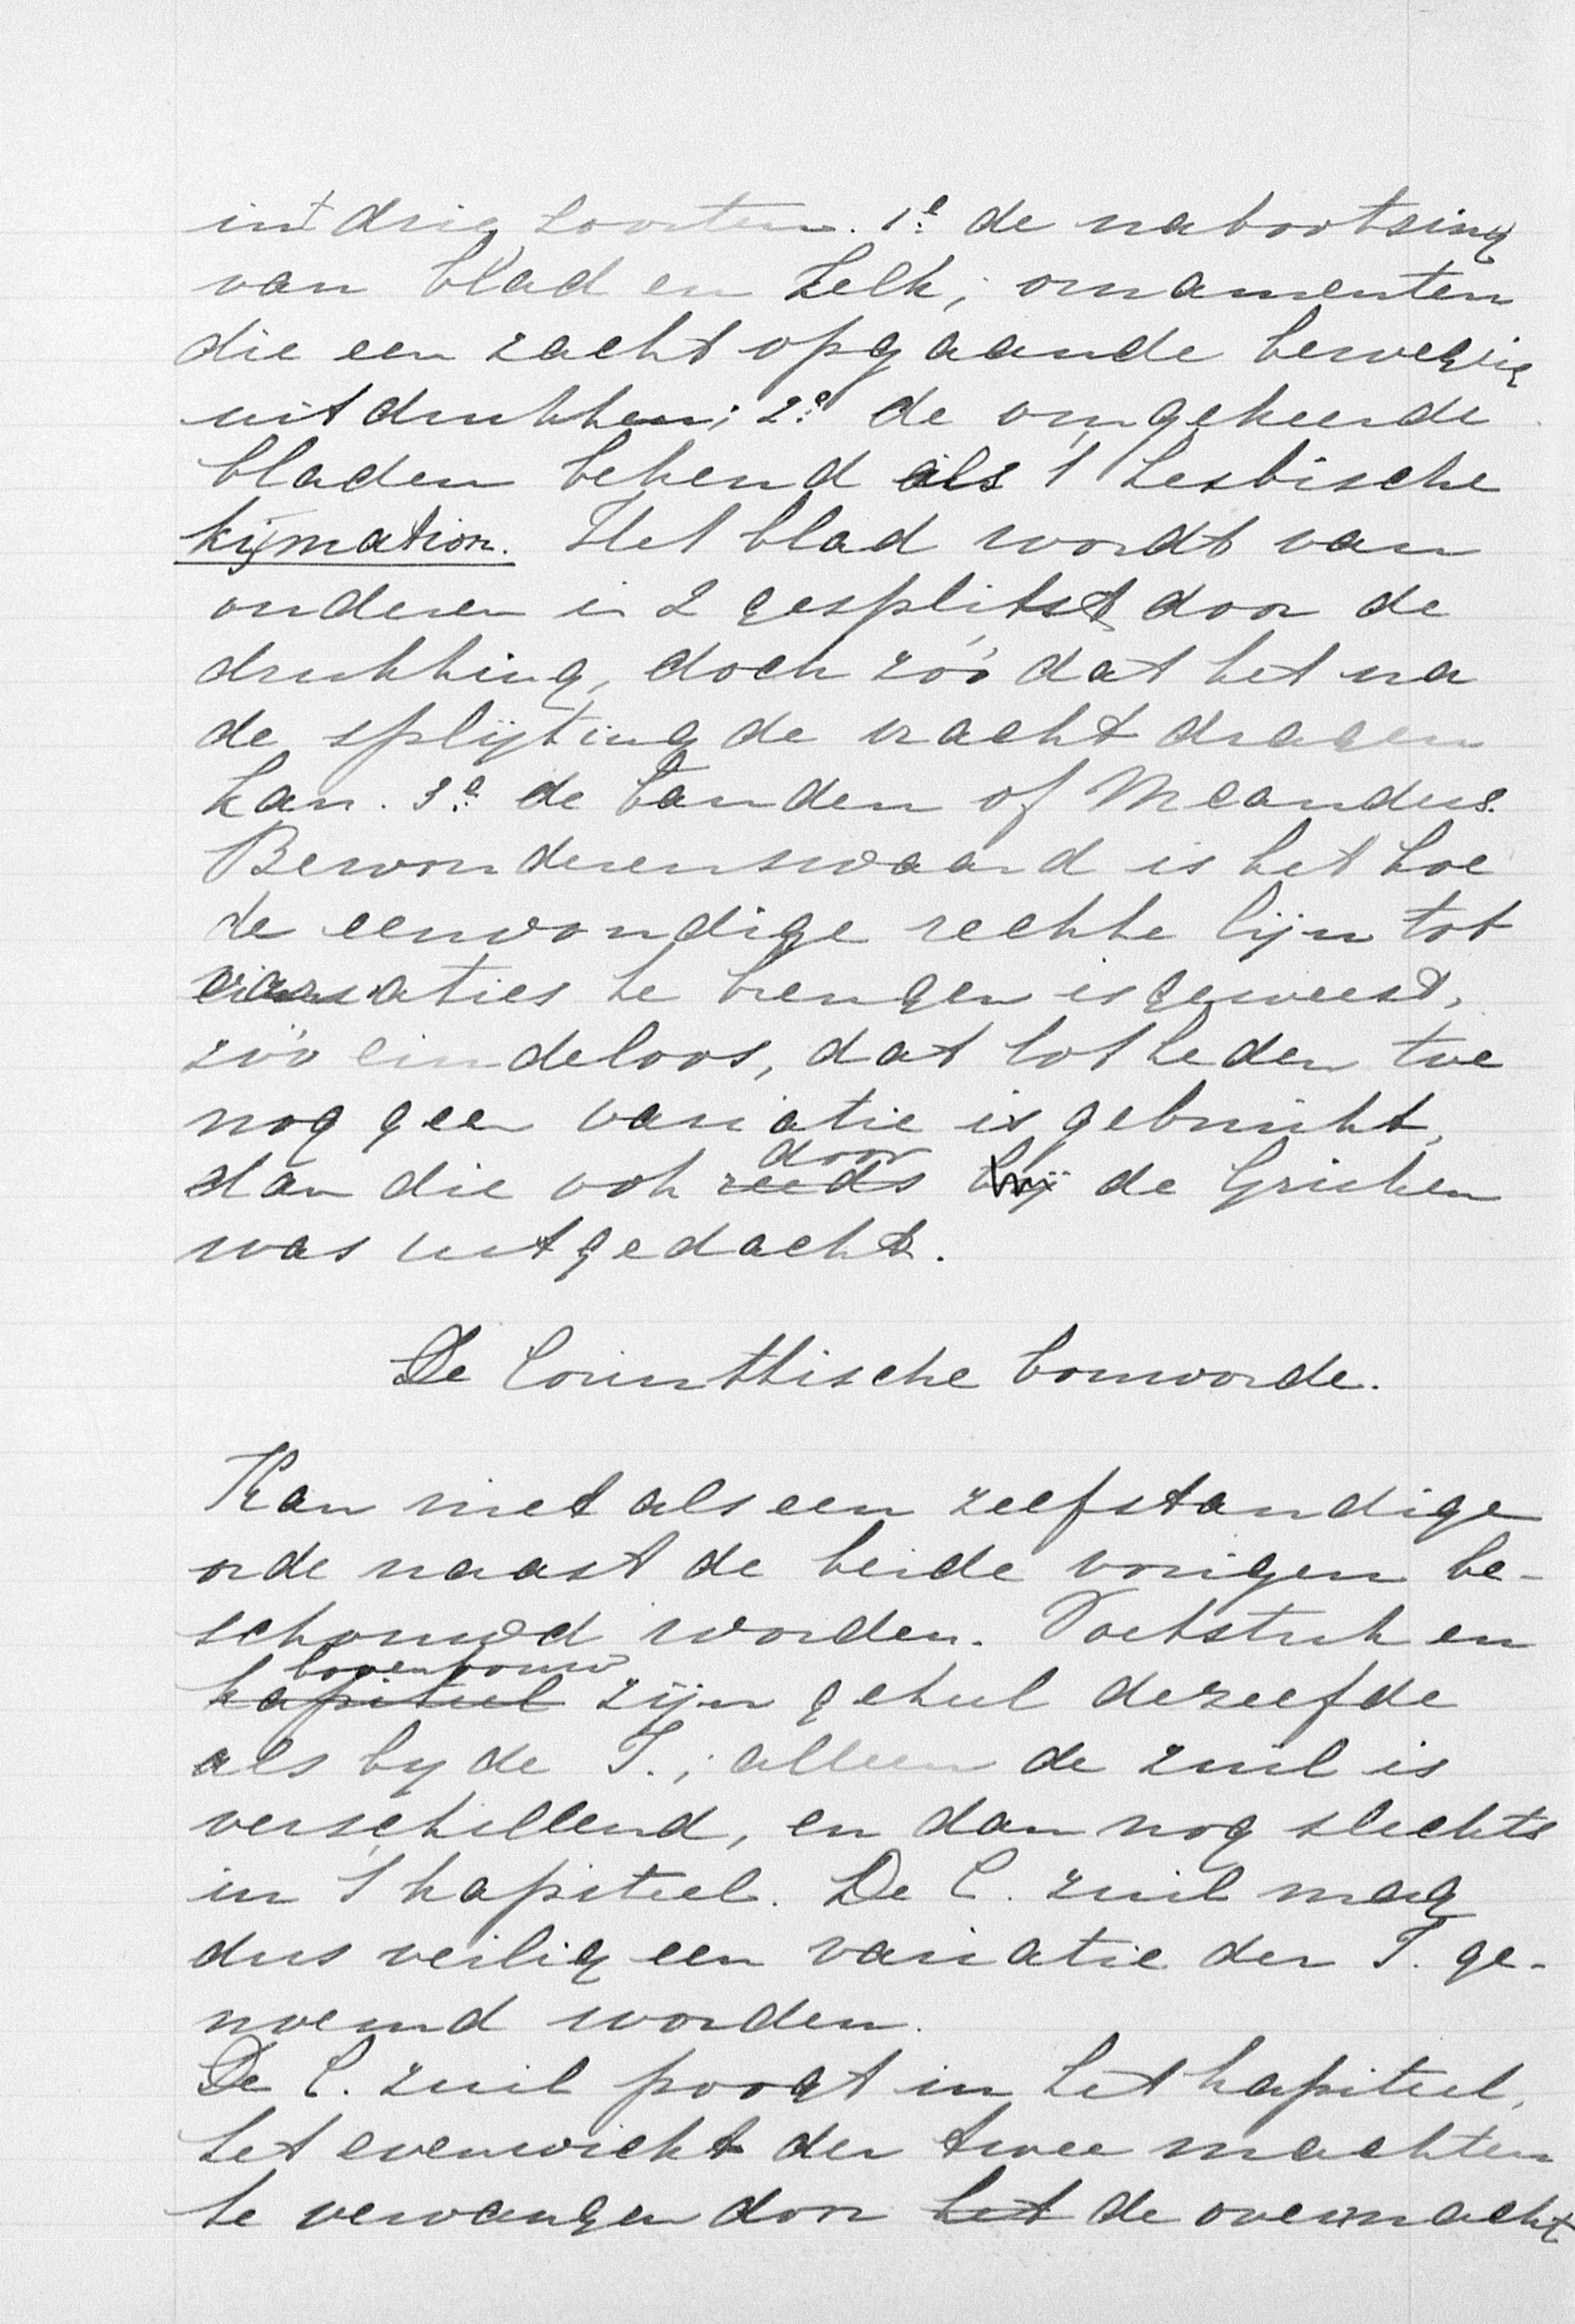 in drie soorten. 1e de nabootsing
van blad en kelk; ornamenten
die een zacht opgaande beweging
uitdrukken; 2e de omgekeerde
bladen bekend als 't Lesbische
kymation. Het blad wordt van
onderen in 2 gesplitst door de
drukking, doch zóó dat het na
de splijting de vracht dragen
kan. 3e de banden of Meanders.
Bewonderenswaard is het hoe
de eenvoudige rechte lijn tot
variaties te brengen is geweest,
zóó eindeloos, dat tot heden toe
nog geen variatie is gebruikt,
dan die ook reeds door de Grieken
was uitgedacht.
De Corinthische bouworde.
Kan niet als een zelfstandige
orde naast de beide vorigen be-
schouwd worden. Voetstuk en
bovenbouw
kapiteel zijn geheel dezelfde
als by de I.; alleen de zuil is
verschillend, en dan nog slechts
in 't kapiteel. De C. zuil mag
dus veilig een variatie der I. ge-
noemd worden.
De C. zuil poogt in het kapiteel,
het evenwicht der twee machten
te vervangen door het de overmacht